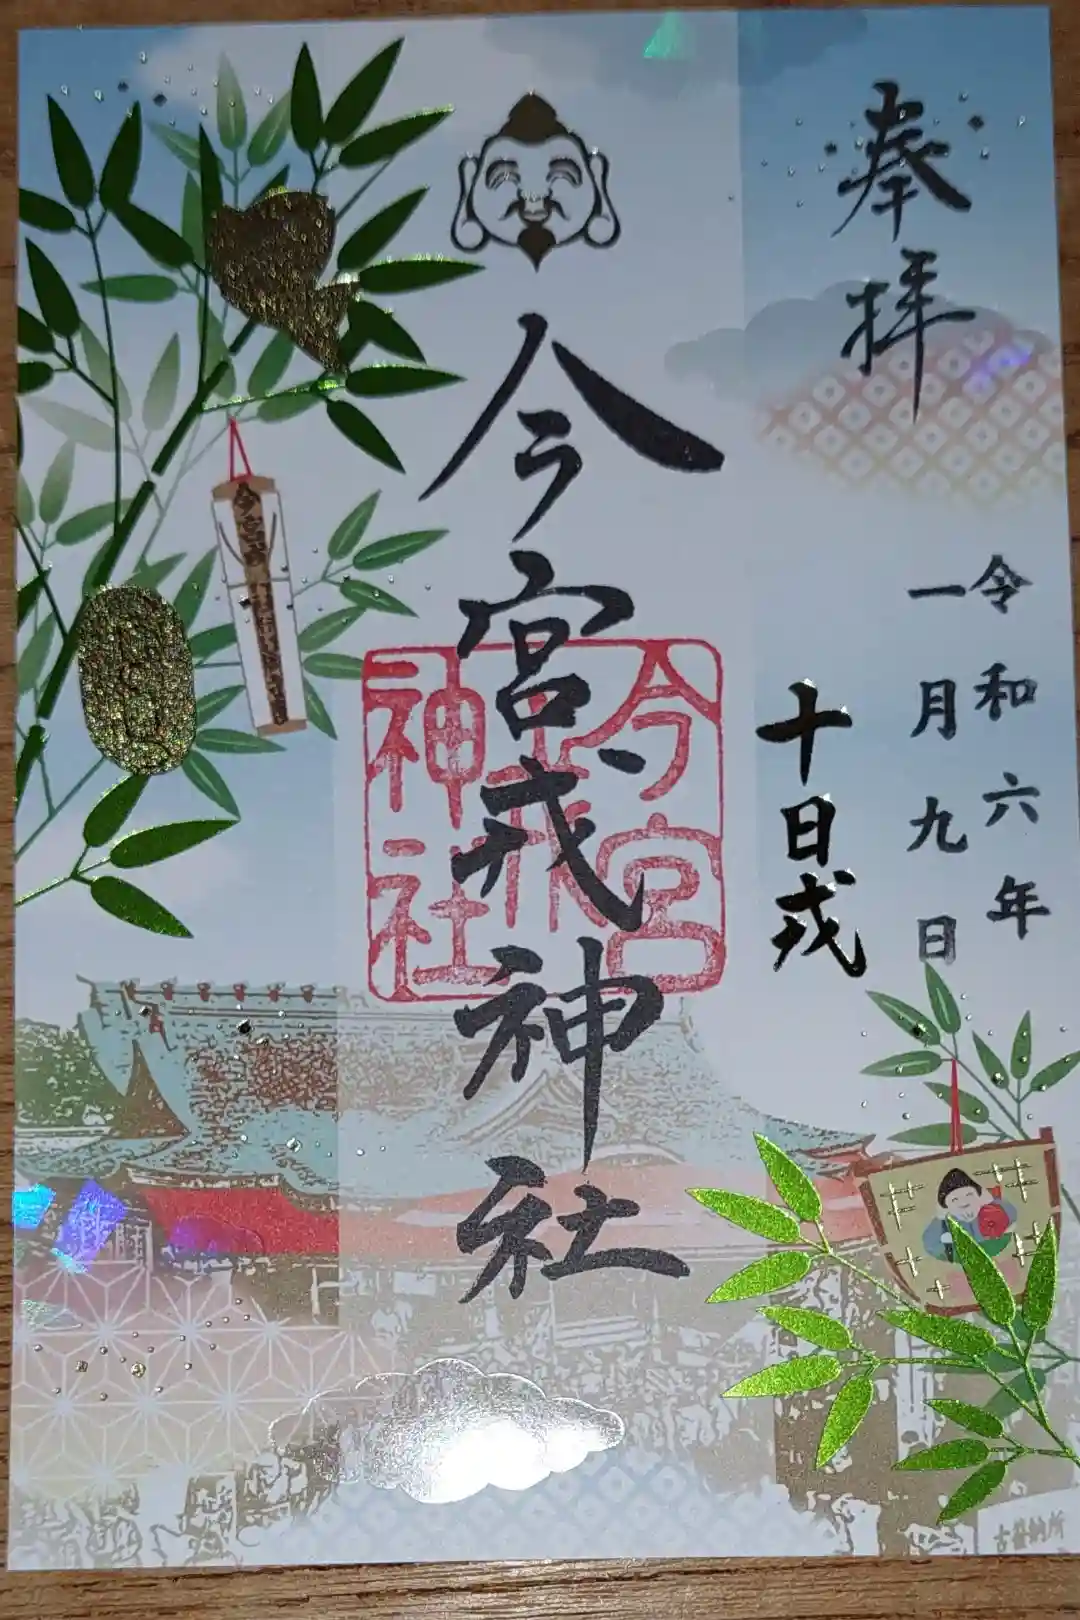 奉拝
令和六年
一月九日
十日戎
今宮戎神社
今宮戎神社
今宮戎
古札納所